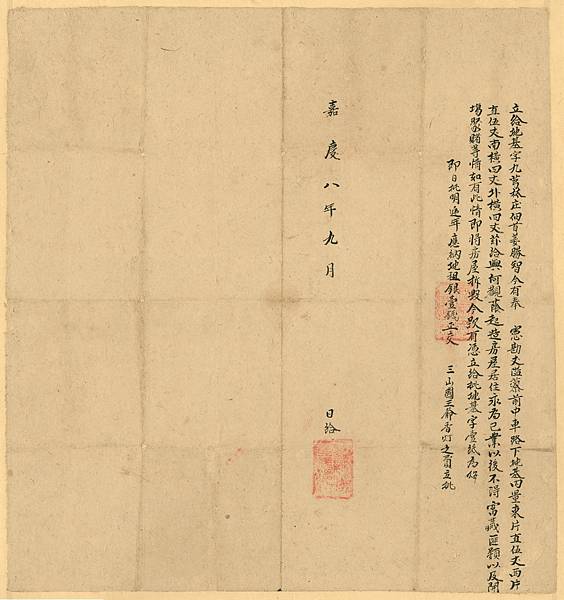 立給地基字九芎林庄佃首姜勝智今有奉 憲勘丈隘藔前中車路下地基四量東片直伍丈西片
直伍丈南橫四丈北橫四丈給與何觀蔭起造房屋居住永為己業以後不得窩藏匪類以及開
場聚賭等情如有此情即將房屋拆毀今欲有憑立給批地基字壹紙為炤
即日批明遞年應納地租銀壹錢正交 三山國王爺香灯之資立批
嘉慶八年九月 日給